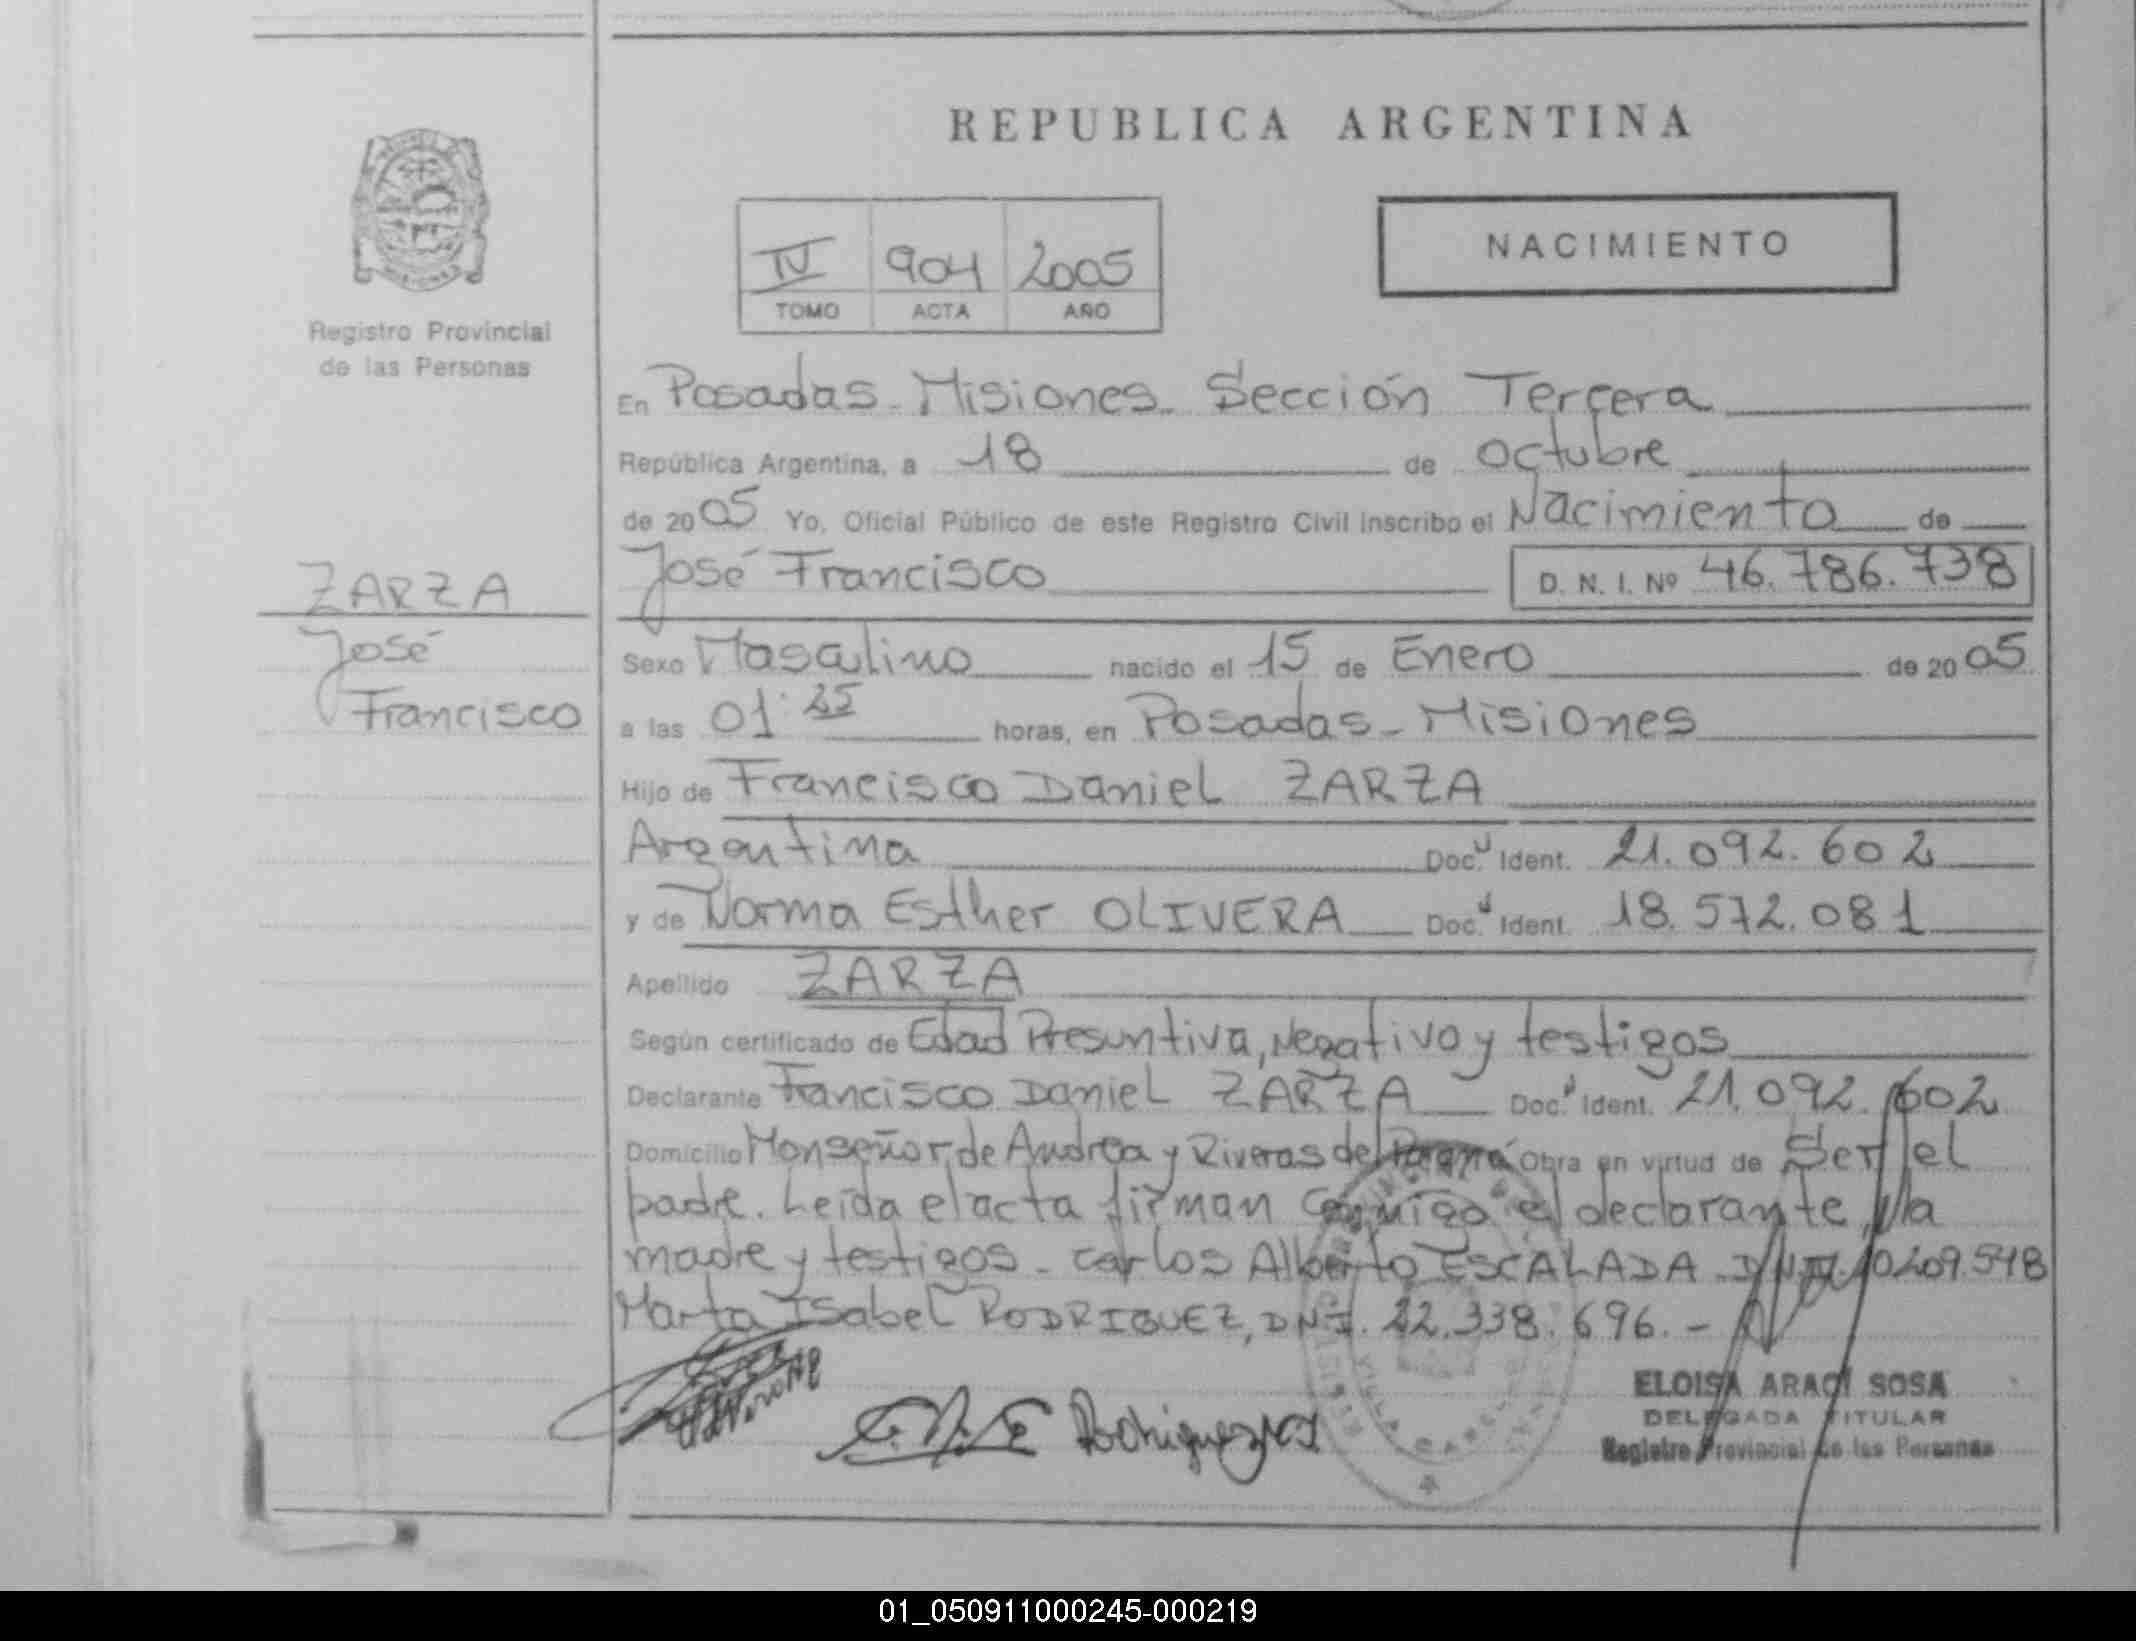 REPUBLICA ARGENTINA
NACIMIENTO
IV 904 2005
TOMO ACTA AÑO
Registro Provincial
de las Personas
ZARZA
José
Francisco
En Posadas - Misiones - Sección Tercera
República Argentina, a 18 de octubre
de 2005 Yo, Oficial Público de este Registro Civil inscribo el Nacimiento de
José Francisco D. N. I. Nº 46.786.738
Sexo Masculino nacido el 15 de Enero de 2005
a las 01:25 horas, en Posadas - Misiones
Hijo de Francisco Daniel ZARZA
Argentina Doc. Ident. 21.092.602
y de Norma Esther OLIVERA Doc. Ident. 18.572.081
Apellido ZARZA
Según certificado de Edad Presuntiva, Negativo y testigos
Declarante Francisco Daniel ZARZA Doc. Ident. 21.092.602
Domicilio Monseñor de Andrea y Riveras del Paraná Obra en virtud de Ser el
padre. Leída el acta firman conmigo el declarante, la
madre y testigos - Carlos Alberto ESCALADA
Marta Isabel RODRIGUEZ, DNI. 22.338.696.-
Rodriguez
ELOISA ARACI SOSA
DELEGADA TITULAR
Registro Provincial de las Personas
01_050911000245-000219